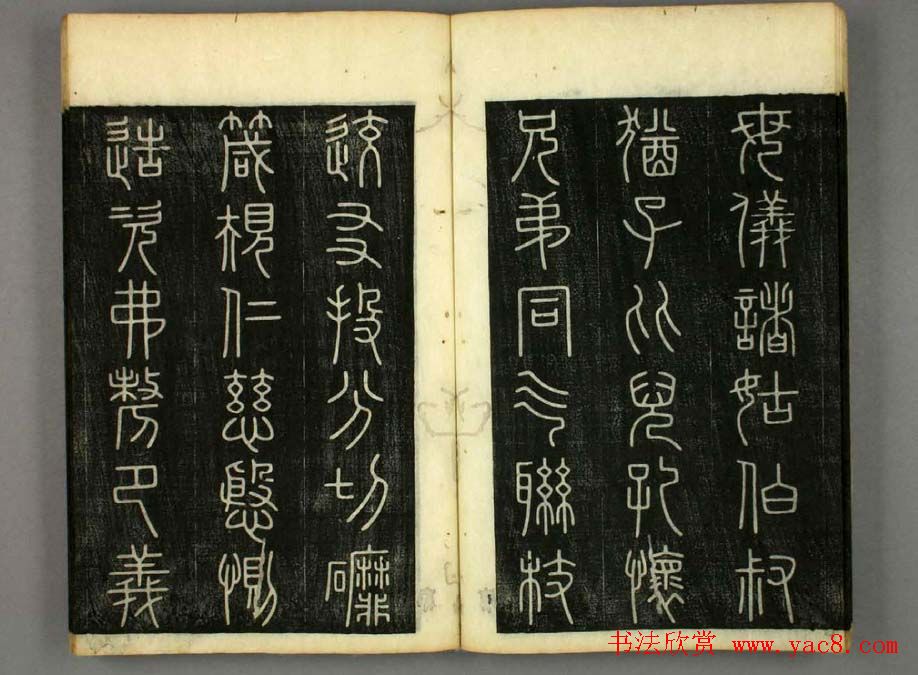 母儀諸姑伯叔
猶子比兒孔懷
兄弟同气聯枝
䢒友投分切礳
箴規仁慈㥯惻
造次弗𠩺卪義
书法欣赏 www.yac8.com